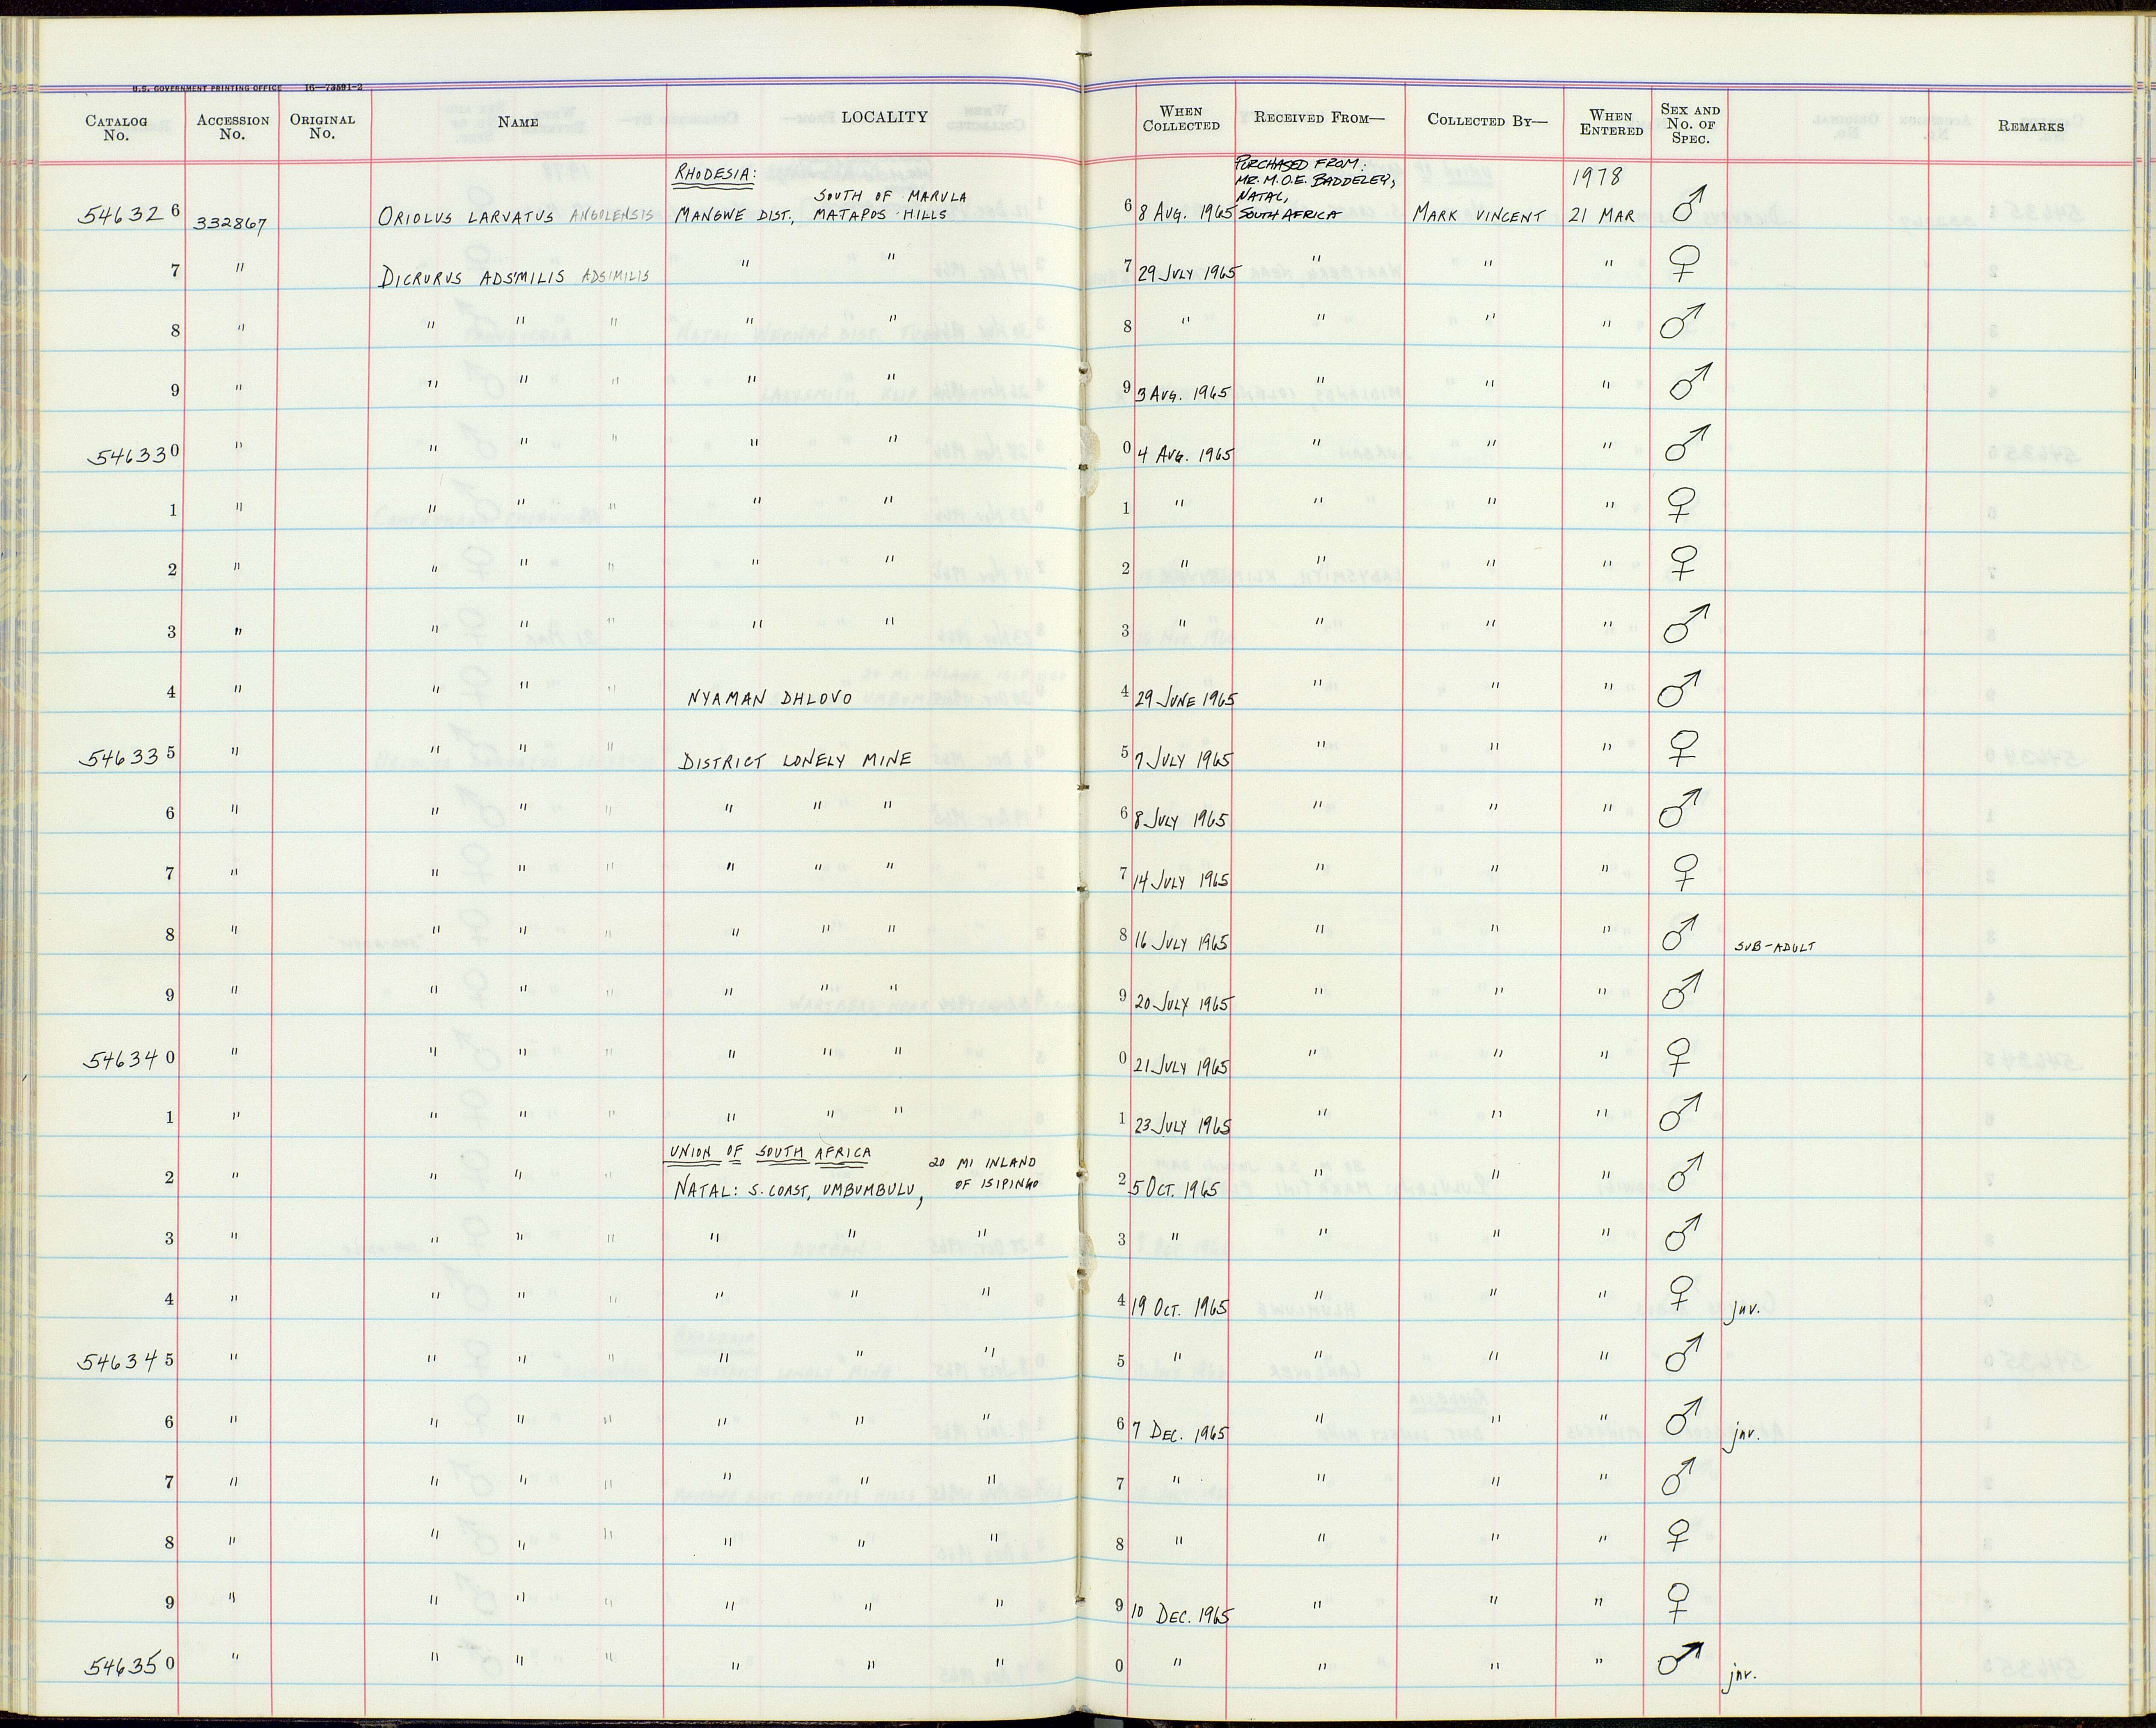 U.S. GOVERNMENT PRINTING OFFICE 16—73591-2
CATALOG No. ACCESSION No. ORIGINAL No. NAME LOCALITY WHEN COLLECTED RECEIVED FROM— COLLECTED BY— WHEN ENTERED SEX AND No. OF SPEC. REMARKS
RHODESIA: PURCHASED FROM: 1978
MR. M.O.E. BADDELEY,
SOUTH OF MARULA NATAL,
546326 332867 ORIOLUS LARVATUS ANGOLENSIS MANGWE DIST., MATAPOS HILLS 6 8 AUG. 1965 SOUTH AFRICA MARK VINCENT 21 MAR ♂
7 " DICRURUS ADSMILIS ADSIMILIS " " 7 29 JULY 1965 " " " ♀
8 " " " " " " 8 " " " " ♂
9 " " " " " " 9 3 AUG. 1965 " " " ♂
546330 " " " " " " 0 4 AUG. 1965 " " " ♂
1 " " " " " " 1 " " " " ♀
2 " " " " " " 2 " " " " ♀
3 " " " " " " 3 " " " " ♂
4 " " " " NYAMAN DHLOVO 4 29 JUNE 1965 " " " ♂
546335 " " " " DISTRICT LONELY MINE 5 7 JULY 1965 " " " ♀
6 " " " " " " " 6 8 JULY 1965 " " " ♂
7 " " " " " " " 7 14 JULY 1965 " " " ♀
8 " " " " " " " 8 16 JULY 1965 " " " ♂ SUB-ADULT
9 " " " " " " " 9 20 JULY 1965 " " " ♂
546340 " " " " " " " 0 21 JULY 1965 " " " ♀
1 " " " " " " " 1 23 JULY 1965 " " " ♂
UNION OF SOUTH AFRICA 20 MI INLAND
2 " " " " NATAL: S. COAST, UMBUMBULU, OF ISIPINGO 2 5 OCT. 1965 " " " ♂
3 " " " " " " " 3 " " " " ♂
4 " " " " " " " 4 19 OCT. 1965 " " " ♀ juv.
546345 " " " " " " " 5 " " " " ♂
6 " " " " " " " 6 7 DEC. 1965 " " " ♂ juv.
7 " " " " " " " 7 " " " " ♂
8 " " " " " " " 8 " " " " ♀
9 " " " " " " " 9 10 DEC. 1965 " " " ♀
546350 " " " " " " " 0 " " " " ♂ juv.